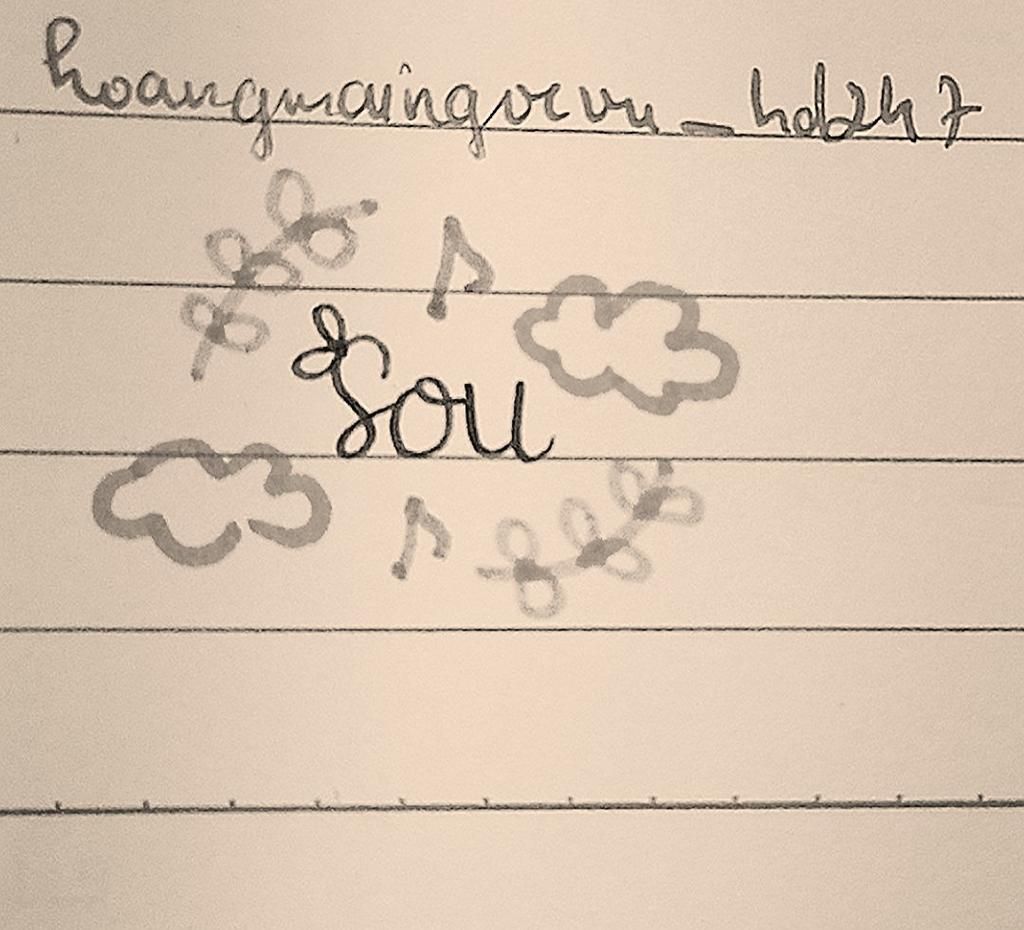 hoangmaingocvu_hd247
Sou